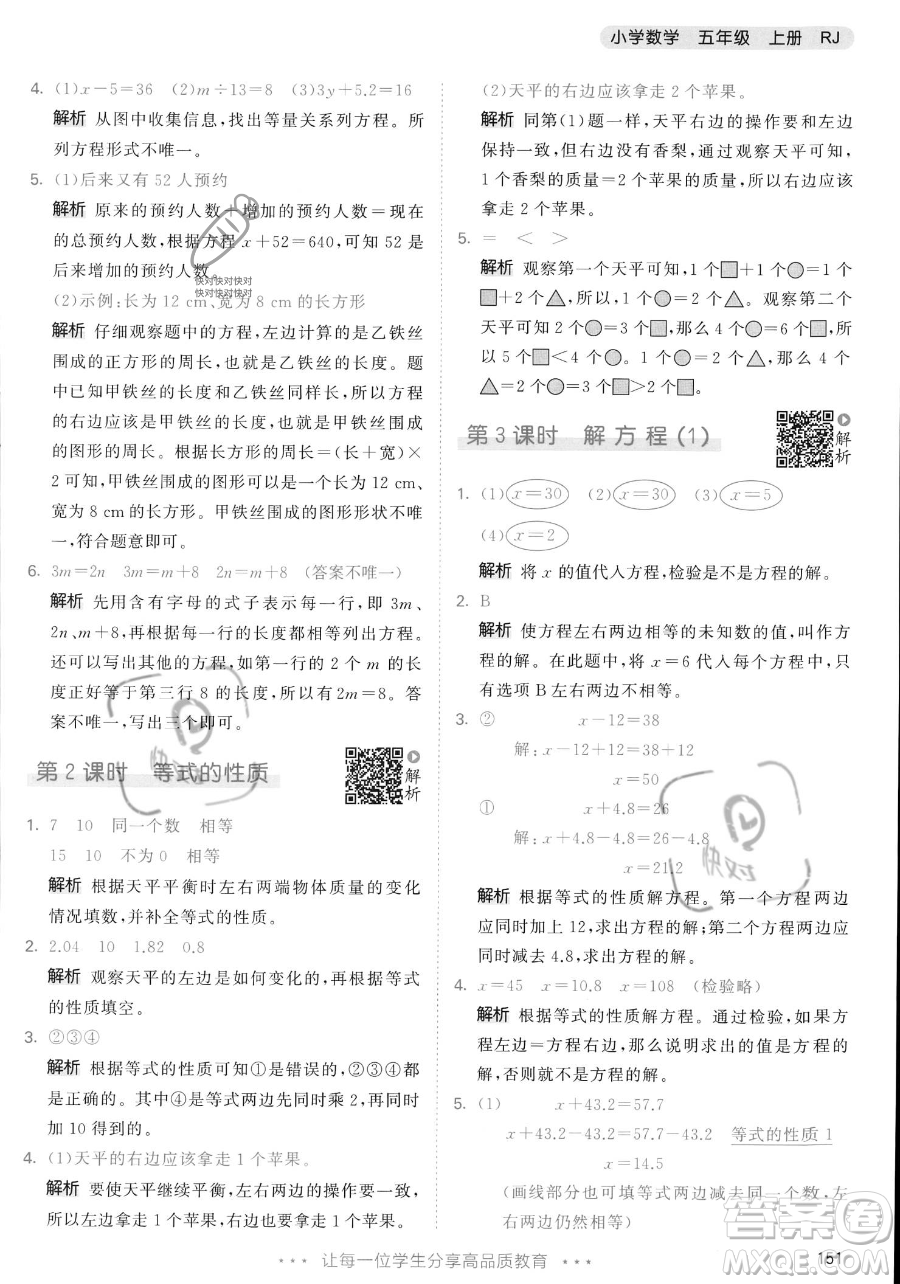 小学数学 五年级 上册 RJ
4. (1)x－5＝36 (2)m÷13＝8 (3)3y＋5.2＝16
解析 从图中收集信息，找出等量关系列方程。所
列方程形式不唯一。
5. (1)后来又有 52 人预约
解析 原来的预约人数＋增加的预约人数＝现在
的总预约人数，根据方程 x＋52＝640，可知 52 是
后来增加的预约人数。
快对快对快对
快对快对快对
(2)示例：长为 12 cm、宽为 8 cm 的长方形
解析 仔细观察题中的方程，左边计算的是乙铁丝
围成的正方形的周长，也就是乙铁丝的长度。题
中已知甲铁丝的长度和乙铁丝同样长，所以方程
的右边应该是甲铁丝的长度，也就是甲铁丝围成
的图形的周长。根据长方形的周长＝(长＋宽)×
2 可知，甲铁丝围成的图形可以是长为 12 cm、
宽为 8 cm 的长方形。甲铁丝围成的图形形状不唯
一，符合题意即可。
6. 3m＝2n 3m＝m＋8 2n＝m＋8 (答案不唯一)
解析 先用含有字母的式子表示每一行，即 3m、
2n、m＋8，再根据每一行的长度都相等列出方程。
还可以写出其他的方程，如第一行的 2 个 m 的长
度正好等于第三行 8 的长度，所以有 2m＝8。答
案不唯一，写出三个即可。
第 2 课时 等式的性质
解析
1. 7 10 同一个数 相等
15 10 不为 0 相等
解析 根据天平平衡时左右两端物体质量的变化
情况填数，并补全等式的性质。
2. 2.04 10 1.82 0.8
解析 观察天平的左边是如何变化的，再根据等式
的性质填空。
3. ②③④
解析 根据等式的性质可知①是错误的，②③④都
是正确的。其中④是等式两边先同时乘 2，再同时
加 10 得到的。
4. (1)天平的右边应该拿走 1 个苹果。
解析 要使天平继续平衡，左右两边的操作要一致，
所以天平的右边也应该拿走 1 个苹果。
(2)天平的右边应该拿走 2 个苹果。
解析 同第(1)题一样，天平右边的操作要和左边
保持一致，但因为右边没有香梨，通过观察天平可知，
1 个香梨的质量＝2 个苹果的质量，所以右边应该
拿走 2 个苹果。
5. ＝ ＜ ＞
解析 观察第一个天平可知，1 个■＋1 个●＝1 个
■＋2 个▲，所以，1 个●＝2 个▲。根据第二个
天平可知 2 个●＝3 个■，那么 4 个●＝6 个■，所
以 5 个■＜4 个●。因为 2 个●＝3 个■＝4 个
▲，所以 3 个■＞2 个▲。
第 3 课时 解方程(1)
解析
1. (1)x＝30 (2)x＝30 (3)x＝5
(4)x＝2
解析 将 x 的值代人方程，检验是不是方程的解。
2. B
解析 使方程左右两边相等的未知数的值，叫作方
程的解。在此题中，将 x＝6 代人每个方程，可知只
有选项 B 左右两边不相等。
3. ② x－12＝38
解：x－12＋12＝38＋12
x＝50
① x＋4.8＝26
解：x＋4.8－4.8＝26－4.8
x＝21.2
解析 根据等式的性质解方程。第一个方程两边
应同时加上 12，求出方程的解；第二个方程两边应同时
减去 4.8，求出方程的解。
4. x＝45 x＝10.8 x＝108 (检验略)
解析 根据等式的性质解方程。通过检验，如果方
程左边＝方程右边，那么说明求出的值是方程的
解，否则就不是方程的解。
5. (1) x＋43.2＝57.7
x＋43.2－43.2＝57.7－43.2 等式的性质 1
x＝14.5
(画线部分也可填等式两边减去同一个数，左
右两边仍然相等)
让每一位学生分享高品质教育
151
快对
答案圈
MXQE.COM